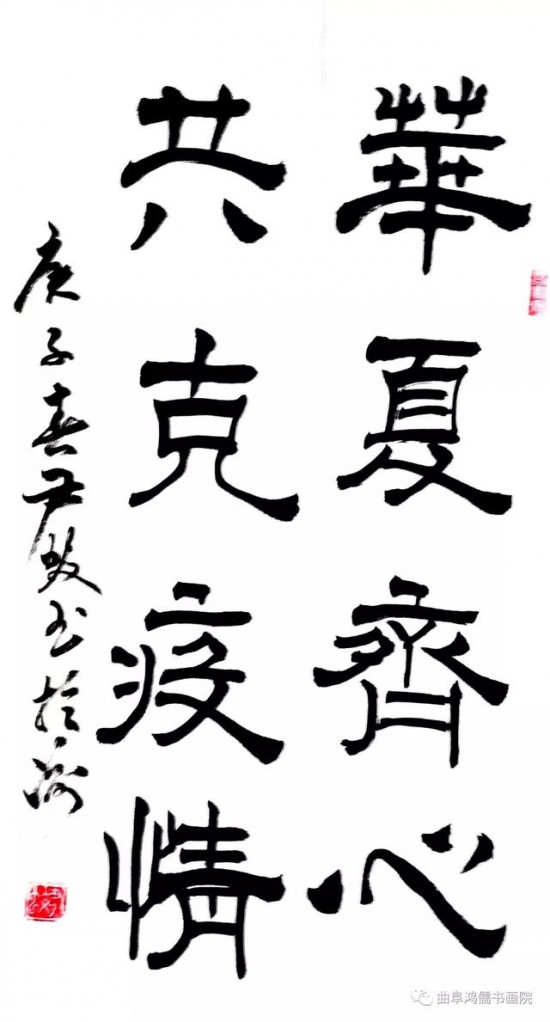 華夏齊心
共克疫情
庚子春尹牧书於
曲阜鸿儒书画院